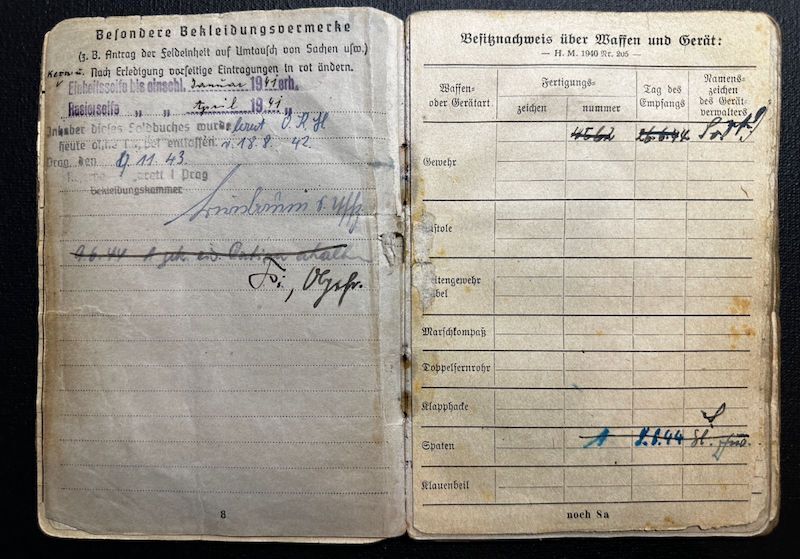 Besondere Bekleidungsvermerke
(z. B. Antrag der Feldeinheit auf Umtausch von Sachen usw.)
Nach Erledigung vorseitige Eintragungen in rot ändern.
Einheitsseife bis einschl. Januar 1941 erh.
Rasierseife „ „ April 1941 „
Inhaber dieses Soldbuches wurde laut O.K.H
heute v. 18.8. 42.
Prag den 9.11.43.
Prag
Bekleidungskammer
9.6.44 1
Obgefr.
8
Besitznachweis über Waffen und Gerät:
— H. M. 1940 Nr. 205 —
Waffen- oder Gerätart
Fertigungs-
zeichen
nummer
Tag des Empfangs
Namenszeichen des Gerätverwalters
4562 26.6.44
Gewehr
istole
eitengewehr
bel
Marschkompaß
Doppelfernrohr
Klapphacke
Spaten 1 9.6.44
Klauenbeil
noch 8a